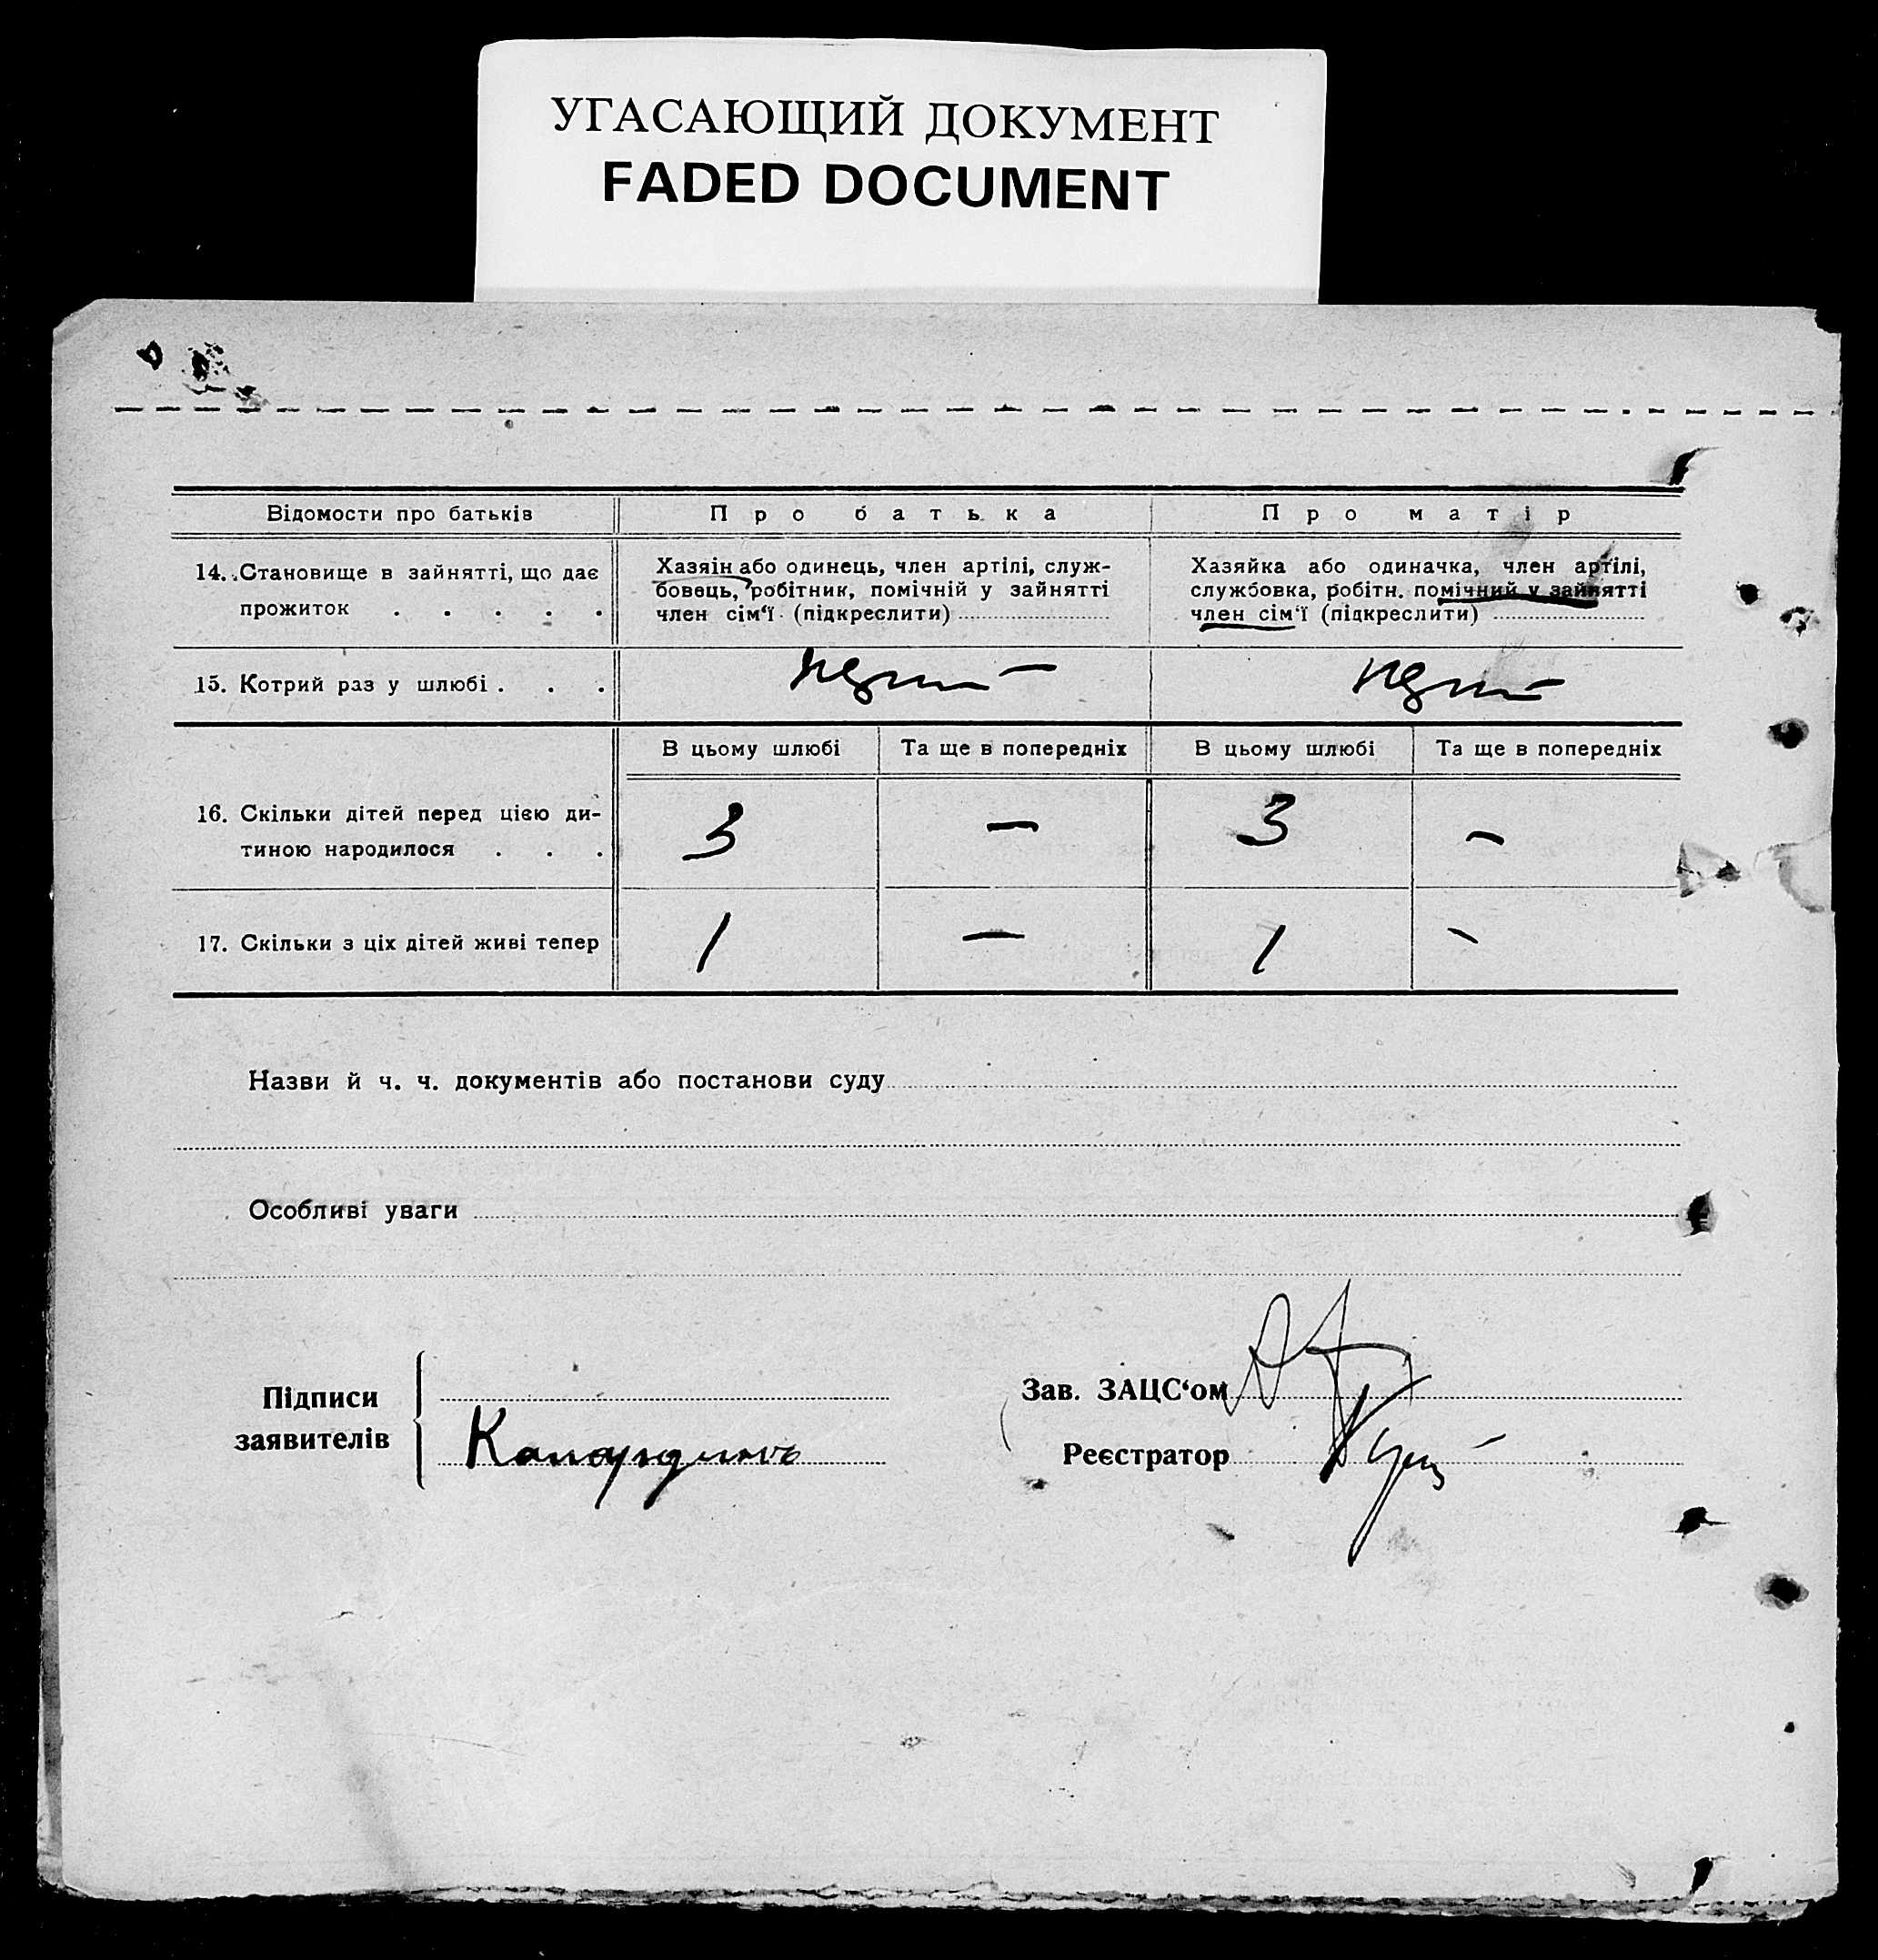 УГАСАЮЩИЙ ДОКУМЕНТ
FADED DOCUMENT
Відомости про батьків
Про батька
Про матір
14. Становище в зайнятті, що дає
прожиток . . . . .
Хазяін або одинець, член артілі, служ-
бовець, робітник, помічній у зайнятті
член сім‘ї (підкреслити)
Хазяйка або одиначка, член артілі,
службовка, робітн. помічний у зайнятті
член сім‘ї (підкреслити)
15. Котрий раз у шлюбі . . .
В цьому шлюбі
Та ще в попередніх
В цьому шлюбі
Та ще в попередніх
16. Скільки дітей перед цією ди-
тиною народилося . . .
3 — 3 —
17. Скільки з ціх дітей живі тепер
1 — 1 —
Назви й ч. ч. документів або постанови суду
Особливі уваги
Підписи
заявителів
Зав. ЗАЦС‘ом
Реєстратор